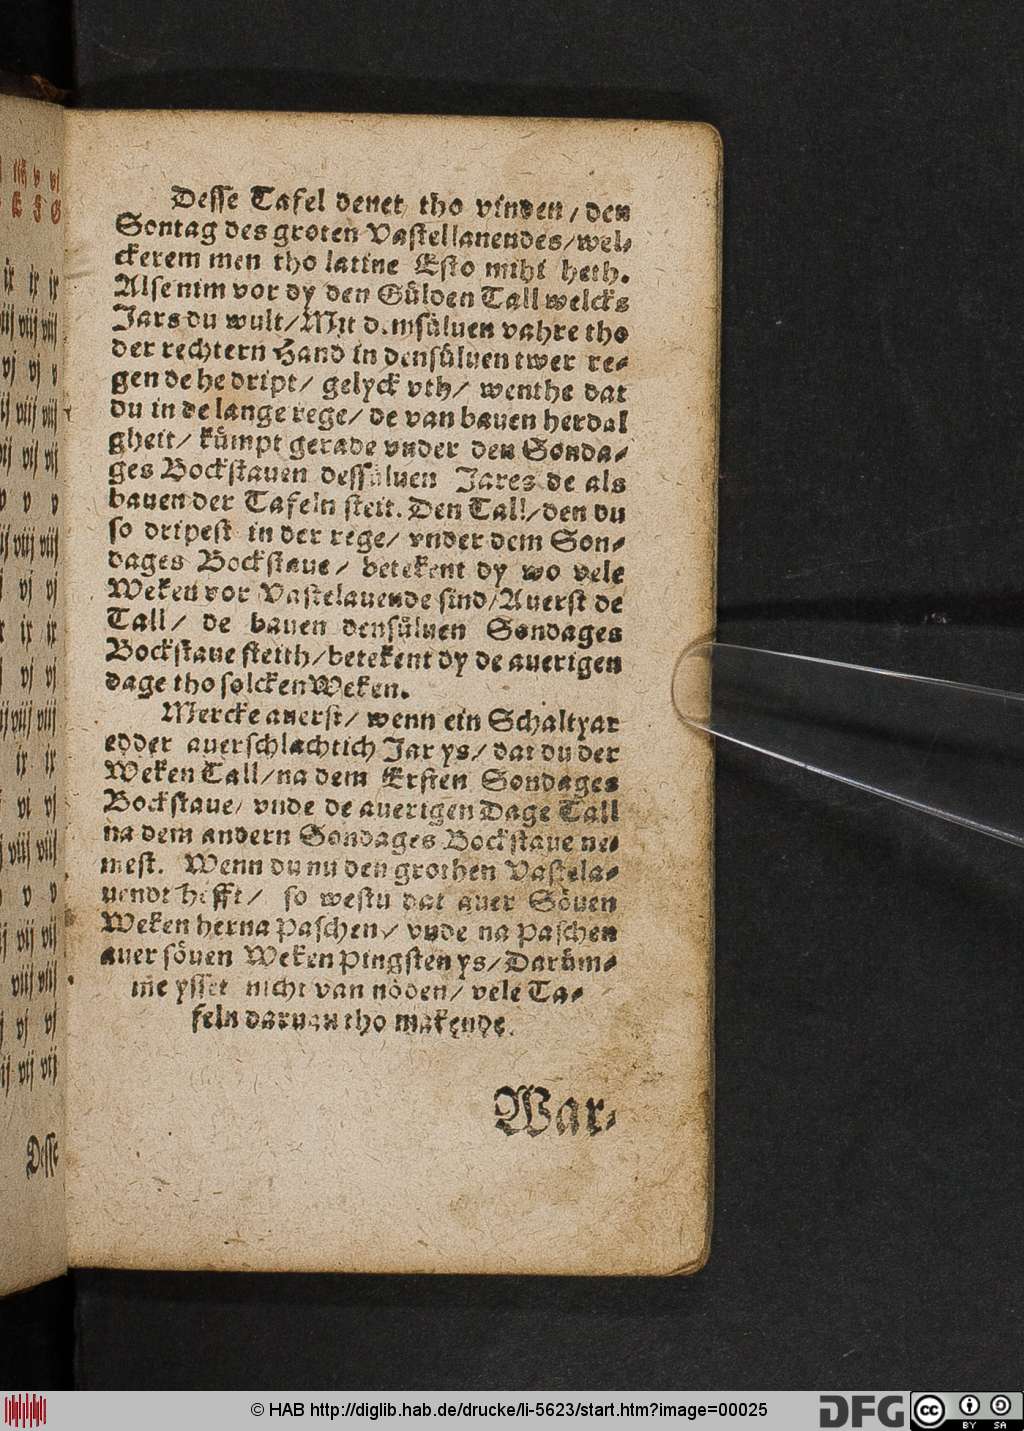 Desse Tafel denet tho vinden / den
Sontag des groten Vastellauendes / wel-
ckerem men tho latine Esto mihi heth.
Alse nim vor dy den Gülden Tall welcks
Jars du wult / Mit demsüluen vahre tho
der rechtern Hand in densüluen twer re-
gen de he dript / gelyck vth / wenthe dat
du in de lange rege / de van bauen herdal
gheit / kümpt gerade vnder den Sonda-
ges Bockstauen dessüluen Jares de als
bauen der Tafeln steit. Den Tall / den du
so dripest in der rege / vnder dem Son-
dages Bockstaue / betekent dy wo vele
Weken vor Vastelauende sind / Auerst de
Tall / de bauen densüluen Sondages
Bockstaue steith / betekent dy de auerigen
dage tho solcken Weken.
Mercke auerst / wenn ein Schaltyar
edder auerschlachtich Jar ys / dat du der
Weken Tall / na dem Ersten Sondages
Bockstaue / vnde de auerigen Dage Tall
na dem andern Sondages Bockstaue ne-
mest. Wenn du nu den grothen Vastela-
uendt hefft / so westu dat auer Söuen
Weken herna Paschen / vnde na Paschen
auer söuen Weken Pingsten ys / Darüm-
me ysset nicht van nöden / vele Ta-
feln daruan tho makende.
War-
Desse
© HAB http://diglib.hab.de/drucke/li-5623/start.htm?image=00025
DFG
cc BY SA